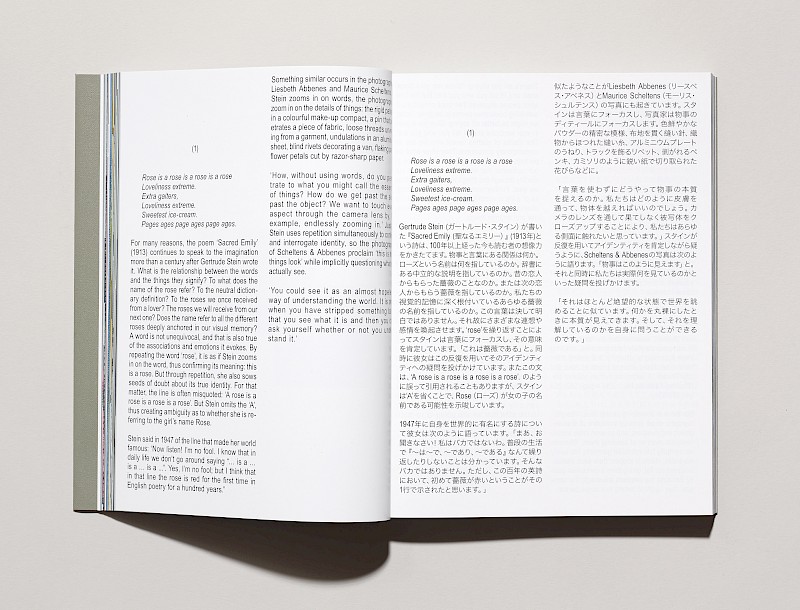 (1)
Rose is a rose is a rose is a rose
Loveliness extreme.
Extra gaiters,
Loveliness extreme.
Sweetest ice-cream.
Pages ages page ages page ages.
For many reasons, the poem ‘Sacred Emily’
(1913) continues to speak to the imagination
more than a century after Gertrude Stein wrote
it. What is the relationship between the words
and the things they signify? To what does the
name of the rose refer? To the neutral diction-
ary definition? To the roses we once received
from a lover? The roses we will receive from our
next one? Does the name refer to all the different
roses deeply anchored in our visual memory?
A word is not unequivocal, and that is also true
of the associations and emotions it evokes. By
repeating the word ‘rose’, it is as if Stein zooms
in on the word, thus confirming its meaning: this
is a rose. But through repetition, she also sows
seeds of doubt about its true identity. For that
matter, the line is often misquoted: ‘A rose is a
rose is a rose is a rose’. But Stein omits the ‘A’,
thus creating ambiguity as to whether she is re-
ferring to the girl’s name Rose.
Stein said in 1947 of the line that made her world
famous: ‘Now listen! I’m no fool. I know that in
daily life we don’t go around saying “… is a …
is a … is a …”. Yes, I’m no fool; but I think that
in that line the rose is red for the first time in
English poetry for a hundred years.’
Something similar occurs in the
Liesbeth Abbenes and Maurice
Stein zooms in on words, the
zoom in on the details of things: the rigid
in a colourful make-up compact, a pin that
etrates a piece of fabric, loose threads
ing from a garment, undulations in an
sheet, blind rivets decorating a van, flaking
flower petals cut by razor-sharp paper.
‘How, without using words, do you
trate to what you might call the
of things? How do we get past the
past the object? We want to touch
aspect through the camera lens by
example, endlessly zooming in.’
Stein uses repetition simultaneously to
and interrogate identity, so the
of Scheltens & Abbenes proclaim ‘this is
things look’ while implicitly questioning
actually see.
‘You could see it as an almost
way of understanding the world. It is
when you have stripped something
that you see what it is and then you
ask yourself whether or not you
stand it.’
(1)
Rose is a rose is a rose is a rose
Loveliness extreme.
Extra gaiters,
Loveliness extreme.
Sweetest ice-cream.
Pages ages page ages page ages.
Gertrude Stein (ガートルード・スタイン) が書い
た『Sacred Emily (聖なるエミリー)』(1913年)と
いう詩は、100年以上経った今も読者の想像力
をかきたてます。物事と言葉にある関係は何か。
ローズという名前は何を指しているのか。辞書に
ある中立的な説明を指しているのか。昔の恋人
からもらった薔薇のことなのか。または次の恋
人からもらう薔薇を指しているのか。私たちの
視覚的記憶に深く根付いているあらゆる薔薇
の名前を指しているのか。この言葉は決して明
白ではありません。それ故にさまざまな連想や
感情を喚起させます。‘rose’を繰り返すことによ
ってスタインは言葉にフォーカスし、その意味
を肯定しています。「これは薔薇である」と。同
時に彼女はこの反復を用いてそのアイデンティ
ティへの疑問を投げかけています。またこの文
は、‘A rose is a rose is a rose is a rose’. のよう
に誤って引用されることもありますが、スタイン
は‘A’を省くことで、Rose (ローズ) が女の子の名
前である可能性を示唆しています。
1947年に自身を世界的に有名にする詩につい
て彼女は次のように語っています。「まあ、お
聞きなさい! 私はバカではないわ。普段の生活
で『〜は〜で、〜であり、〜である』なんて繰り
返したりしないことは分かっています。そんな
バカではありません。ただし、この百年の英詩
において、初めて薔薇が赤いということがその
1行で示されたと思います。」
似たようなことがLiesbeth Abbenes (リースベ
ス・アベネス) とMaurice Scheltens (モーリス・
シュルテンス) の写真にも起きています。スタ
インは言葉にフォーカスし、写真家は物事の
ディティールにフォーカスします。色鮮やかな
パウダーの精密な模様、布地を貫く縫い針、織
物からほつれた縫い糸、アルミニウムプレート
のうねり、トラックを飾るリベット、剥がれるペ
ンキ、カミソリのように鋭い紙で切り取られた
花びらなどに。
「言葉を使わずにどうやって物事の本質
を捉えるのか。私たちはどのように皮膚を
通って、物体を越えればいいのでしょう。カ
メラのレンズを通して果てしなく被写体をク
ローズアップすることにより、私たちはあらゆ
る側面に触れたいと思っています。」スタインが
反復を用いてアイデンティティを肯定しながら疑
うように、Scheltens & Abbenesの写真は次のよ
うに語ります。「物事はこのように見えます」と。
それと同時に私たちは実際何を見ているのかと
いった疑問を投げかけます。
「それはほとんど絶望的な状態で世界を眺
めることに似ています。何かを丸裸にしたと
きに本質が見えてきます。そして、それを理
解しているのかを自身に問うことができる
のです。」